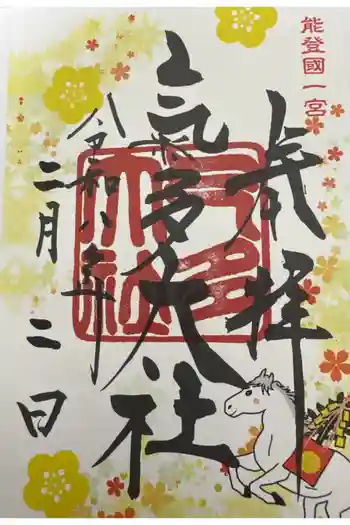 能登國一宮
奉拝
氣多大社
令和八年
三月二日